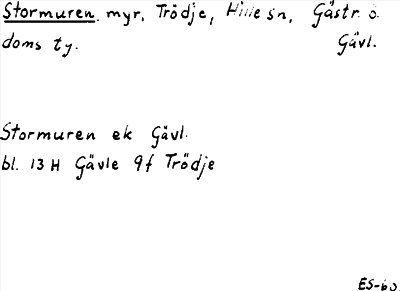 Stormuren, myr, Trödje, Hille sn, Gästr. ö.
doms ty. Gävl.
Stormuren ek Gävl.
bl. 13 H Gävle 9f Trödje